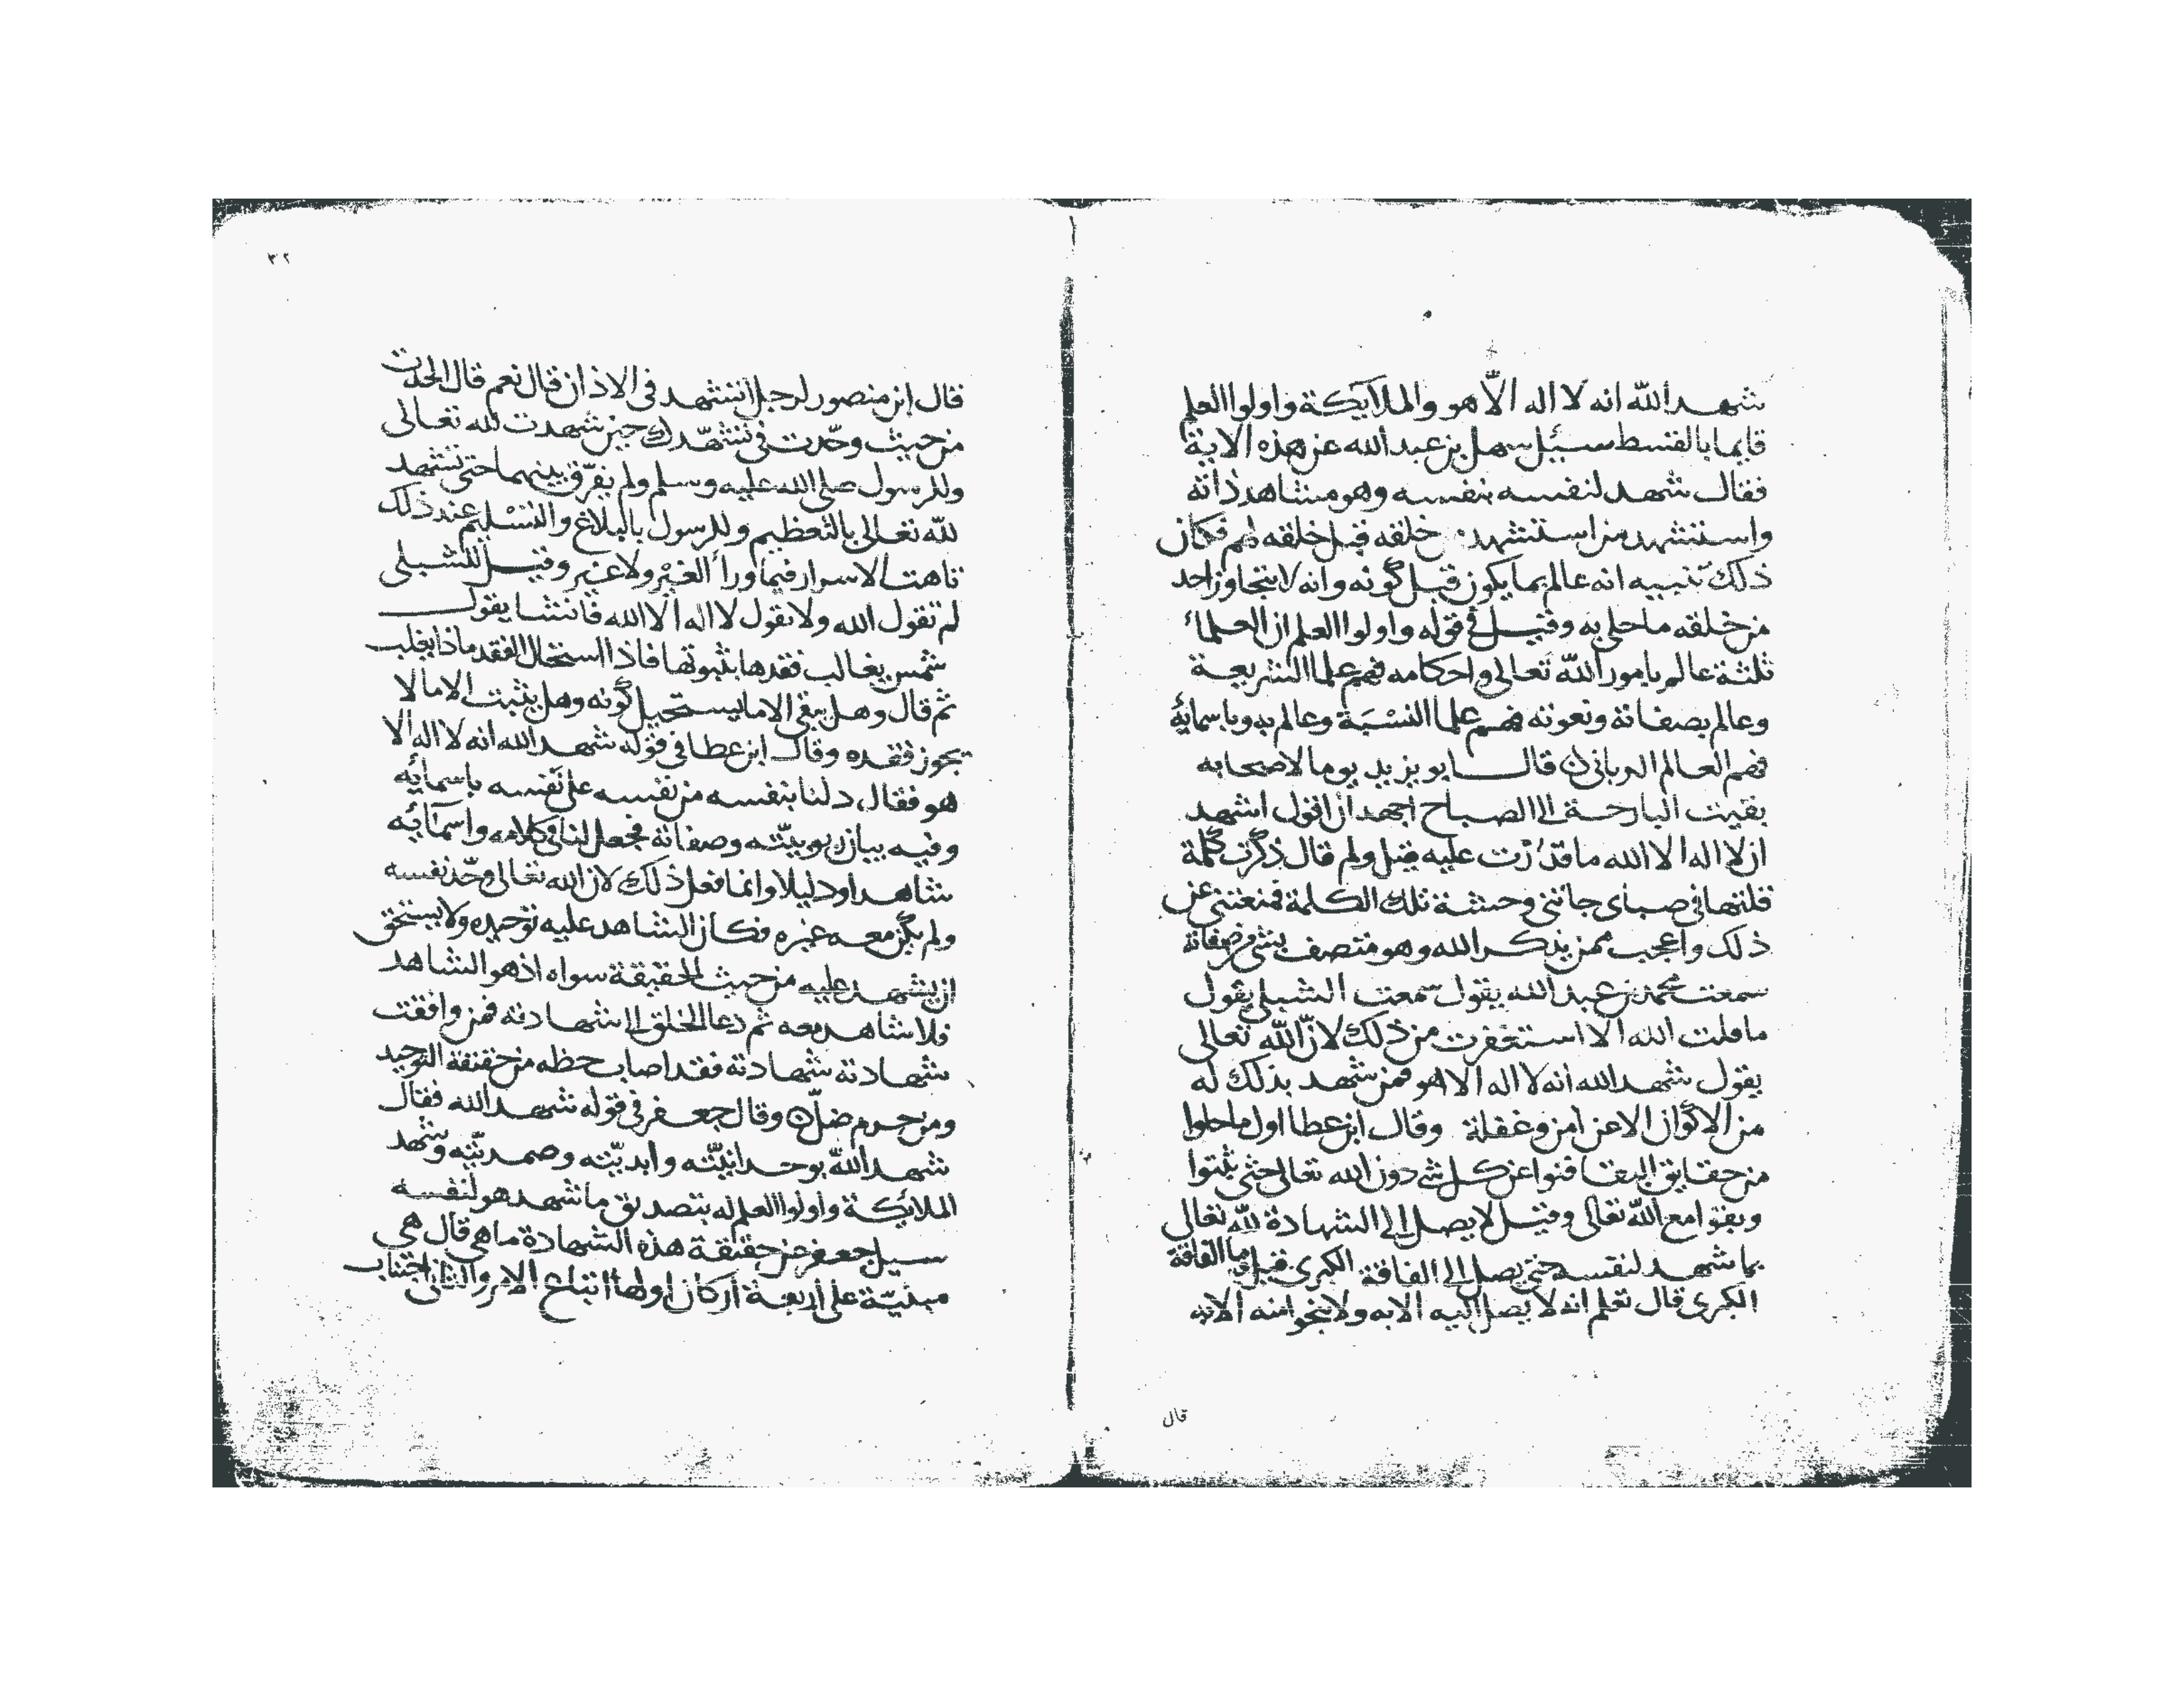 شهد الله انه لا اله الا هو والملايكة واولوا العلم
قايما بالقسط سيئل سهل بن عبد الله عن هذه الاية
فقال شهد لنفسه بنفسه وهو مشاهد ذاته
واستشهد من استشهد خلقه قبل خلقه لهم فكان
ذلك تنبيه انه عالم بما يكون قبل كونه وانه لا يتجاوز احد
من خلقه ما حلى به وقيل في قوله واولوا العلم ان العلماء
ثلثة عالم بامور الله تعالى واحكامه فهم علما الشريعة
وعالم بصفاته ونعوته فهم علما النسبة وعالم به وباسمايه
فهم العالم الرباني ن قال ابو يزيد يوما لاصحابه
بقيت البارحة الى الصباح اجهد ان اقول اشهد
ان لا اله الا الله ما قدرت عليه قيل ولم قال ذكرت كلمة
قلتها في صباى جاتني وحشة تلك الكلمة فمنعتني عن
ذلك واعجب ممن يذكر الله وهو متصف بشي من صفاته
سمعت محمد بن عبد الله يقول سمعت الشبلي يقول
ما قلت الله الا استغفرت من ذلك لان الله تعالى
يقول شهد الله انه لا اله الا هو فمن شهد بذلك له
من الاكوان الا عن امن وغفلة وقال ابن عطا اول ما حلوا
من حقايق البقا فنوا عن كل شي دون الله تعالى حتى ثبتوا
وبقوا مع الله تعالى وقيل لا يصل الى الشهادة لله تعالى
بما شهد لنفسه حتى يصل الى الفاقة الكبرى قيل وما الفاقة
الكبرى قال تعلم انه لا يصل اليه الا به ولا ينجوا منه الا به
قال
٣٢
قال ابن منصور لرجل اتشهد في الاذان قال نعم قال الحدت
من حيث وحّدت في تشهّدك حين شهدت لله تعالى
وللرسول صلى الله عليه وسلم ولم يفرّق بينهما حتى تشهد
لله تعالى بالتعظيم وللرسول بالبلاغ والتسليم عند ذلك
تاهت الاسرار فيما ورا الغير ولا غير وقيل للشبلى
لم تقول الله ولا تقول لا اله الا الله فانشا يقول
شمس يغالب فقدها بثبوتها فاذا استحال الفقد ماذا يغلب
ثم قال وهل يبقى الا ما يستحيل كونه وهل يثبت الا ما لا
يجوز فقده وقال ابن عطا في قوله شهد الله انه لا اله الا
هو فقال دلنا بنفسه من نفسه على نفسه باسمايه
وفيه بيان ربوبيّته وصفاته فجعل لنا في كلامه واسمايه
شاهدا ودليلا وانما فعل ذلك لان الله تعالى وحّد نفسه
ولم يكن معه غيره فكان الشاهد عليه توحيده ولا يستحق
ان يشهد عليه من حيث الحقيقة سواه اذ هو الشاهد
فلا شاهد معه ثم دعا الخلق الى شهادته فمن وافقت
شهادته شهادته فقد اصاب حظه من حقيقة التوحيد
ومن حرم ضلّ ن وقال جعفر في قوله شهد الله فقال
شهد الله بوحدانيّته وابديّته وصمديّته وشهد
الملائكة واولوا العلم له بتصديق ما شهد هو لنفسه
سيل جعفر عن حقيقة هذه الشهادة ما هي قال هي
مبنيّة على اربعة اركان اولها اتباع الامر والثاني اجتناب